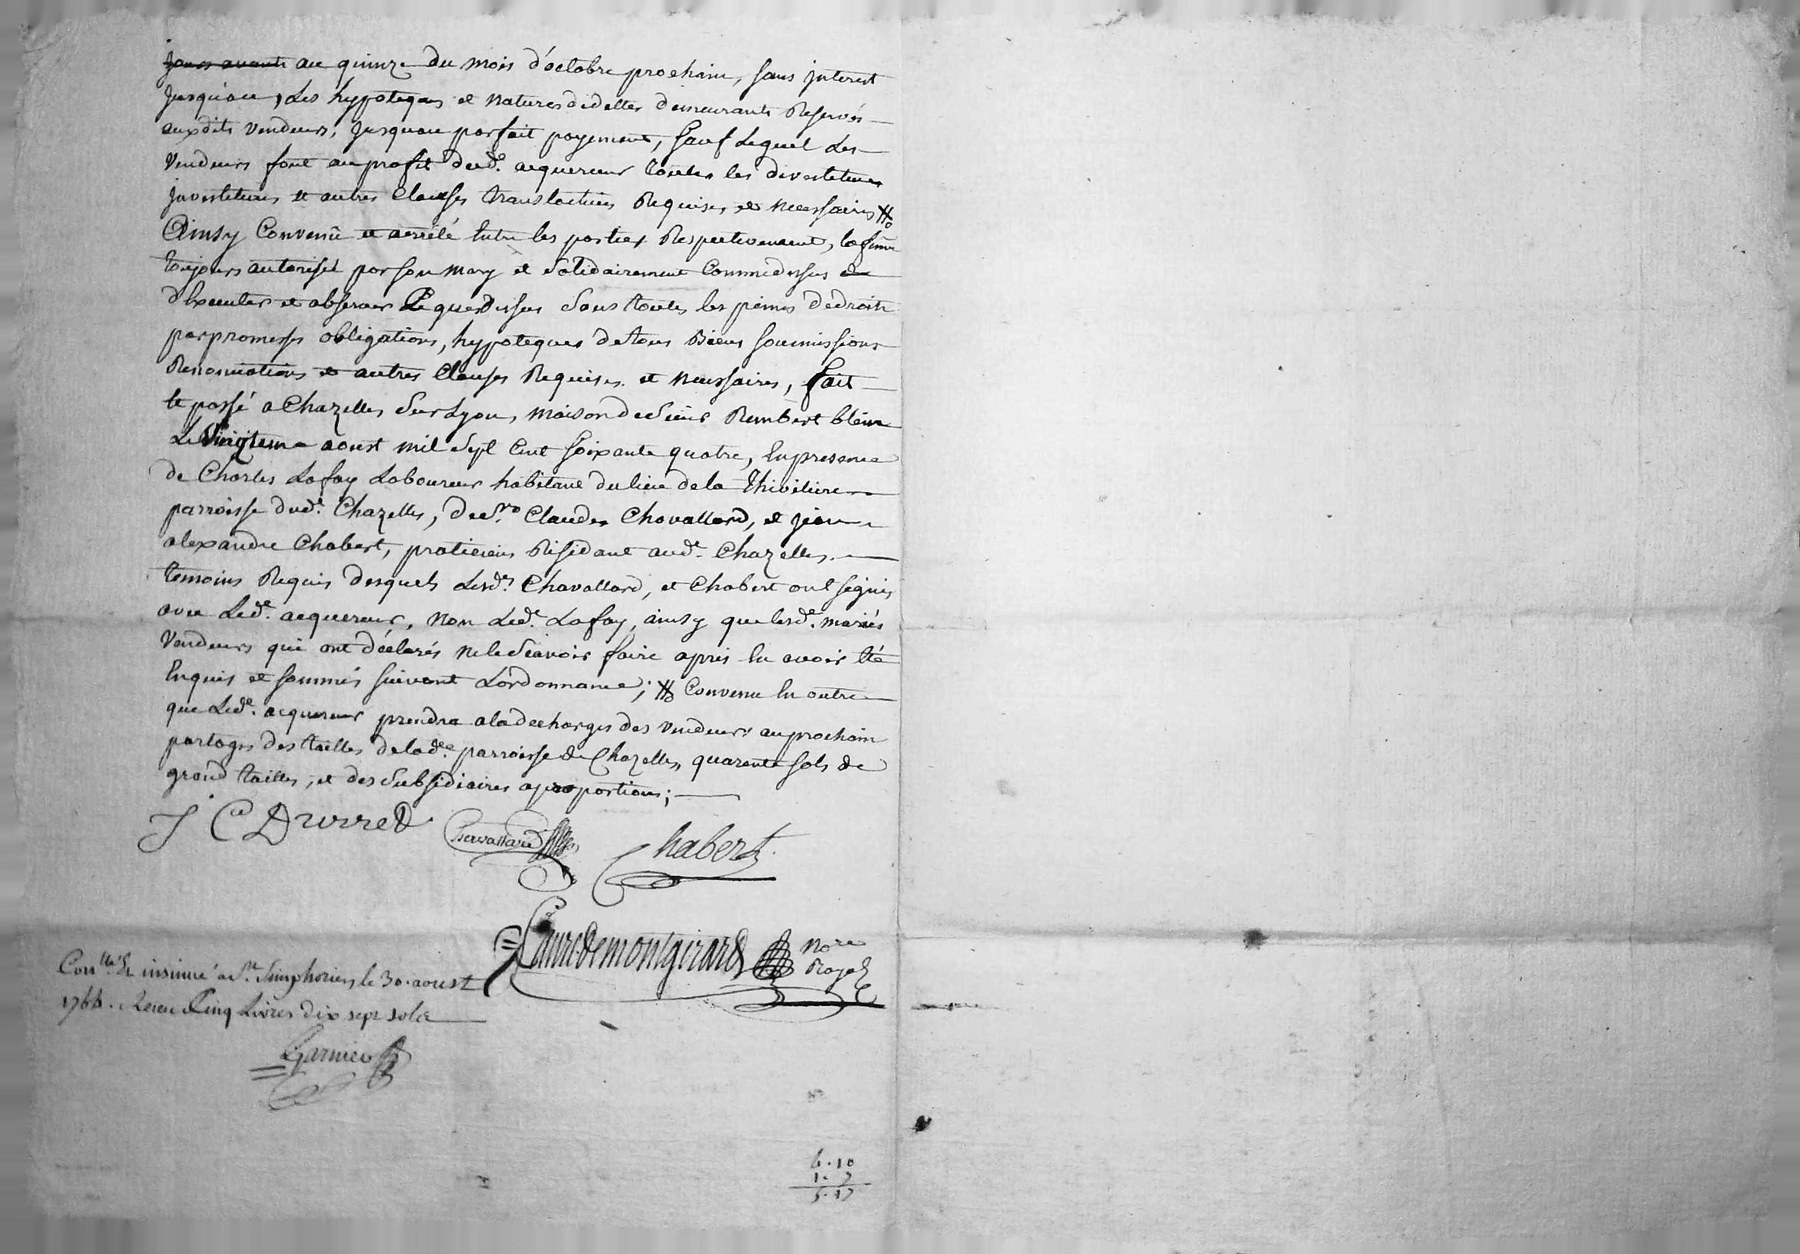 au quinze du mois d'octobre prochain, sans interest
jusqu'au, Les hypoteques et natures dedettes demeurants Reservés
auxdits vendeurs, jusquau parfait payement, sauf Lequel Les
vendeurs font auprofit dud. acquereur toutes les devestitures
investitures et autres Clauses translatives Requises et necessaires
Ainsy Convenû et arrêté Entre les parties Respectivement, la femme
toujours autorisée par son mary et solidairement Commedessus
d'Executer et observer Ce quedessus sous toutes les peines dedroit
par promesses obligations, hypoteques detous Biens soumissions
Renonciations et autres Clauses Requises et necessaires, fait
et passé a Chazelles sur Lyon, maison de sieur Rembert
Le vingtieme aoust mil sept Cent soixante quatre, En presence
de Charles Lafay Laboureur habitant du lieu de la Thiviliere
parroisse dud. Chazelles, de Claude Chavallard, et Jean
alexandre Chabert, praticiens Residant aud. Chazelles
temoins Requis desquels Lesd. Chavallard, et Chabert ont signés
avec Led. acquereur, non Led. Lafay, ainsy que lesd. mariés
vendeurs qui ont déclarés ne le sçavoir faire apres En avoir Eté
Enquis et sommés suivant L'ordonnance; Convenu En outre
que Led. acquereur prendra aladecharge des vendeurs auprochain
partage des tailles de lad. parroisse de Chazelles, quarente sols de
grand tailles, et des subsidiaires aproportions;
J Ce Durret Chavallard Chabert
Caire de montgirard Nore
Royal
Conllé & insinué a St. Simphorien le 30. aoust
1764. Receu Cinq Livres dix sept sols
Garnier
6.10
1.7
5.17